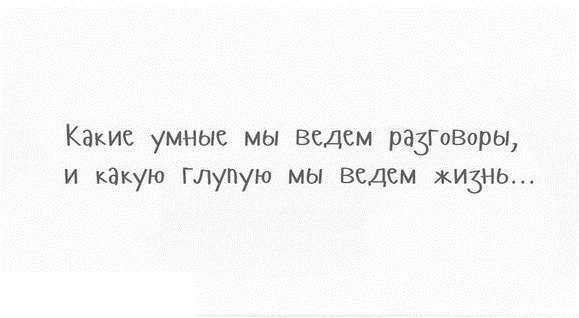 Какие умные мы ведем разговоры,
и какую глупую мы ведем жизнь...